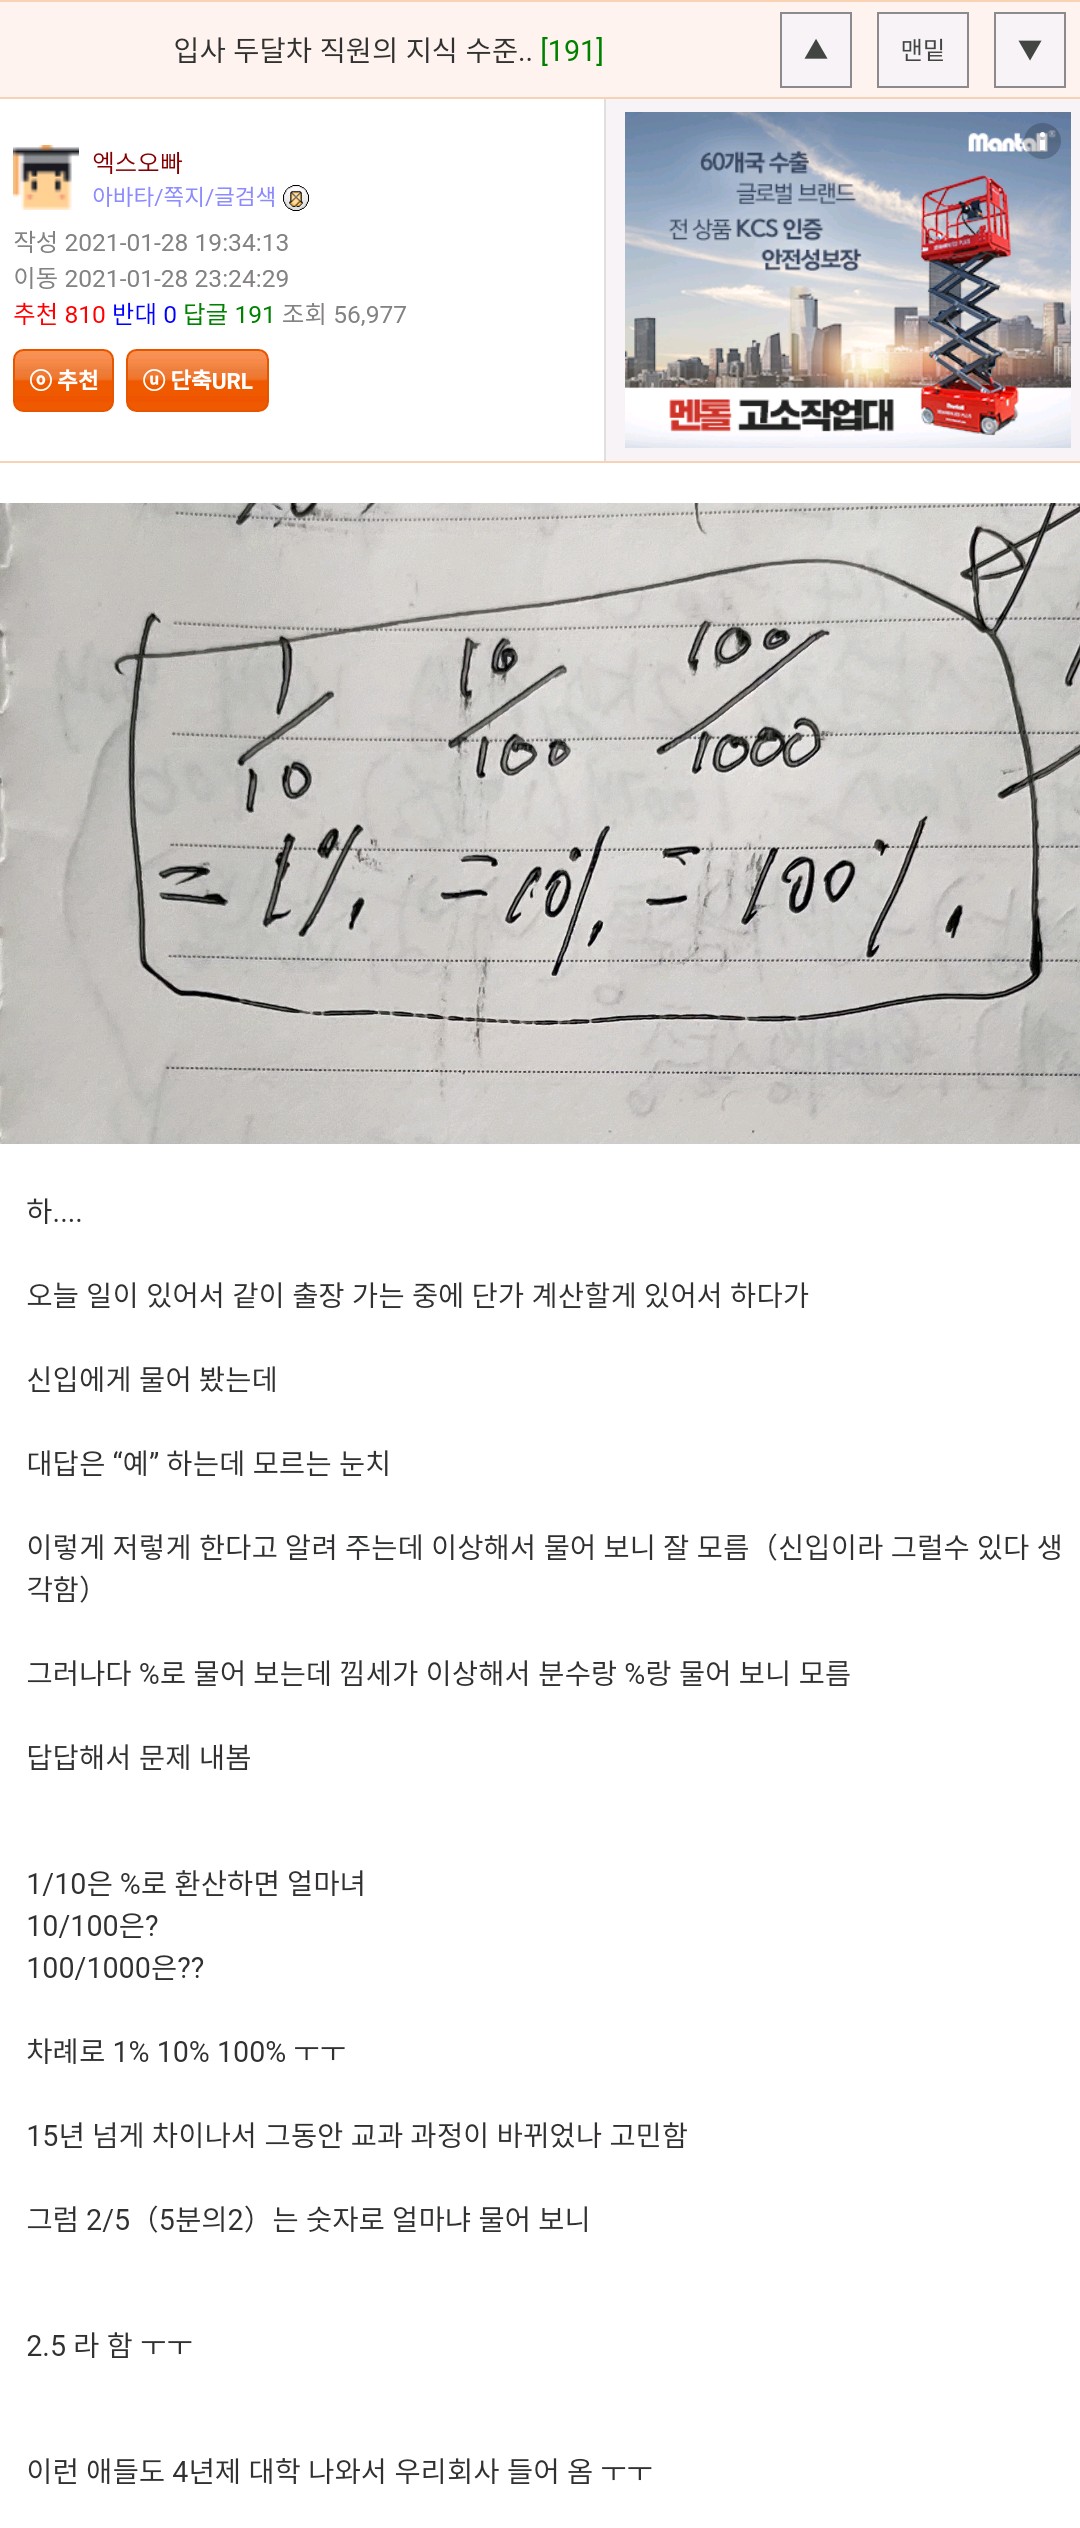 입사 두달차 직원의 지식 수준.. [191]
▲
맨밑
▼
엑스오빠
아바타/쪽지/글검색
작성 2021-01-28 19:34:13
이동 2021-01-28 23:24:29
추천 810 반대 0 답글 191 조회 56,977
ⓞ 추천
ⓤ 단축URL
Mantall
60개국 수출
글로벌 브랜드
전 상품 KCS 인증
안전성보장
멘톨 고소작업대
1/10 10/100 100/1000
= 1%, = 10%, = 100%,
하....
오늘 일이 있어서 같이 출장 가는 중에 단가 계산할게 있어서 하다가
신입에게 물어 봤는데
대답은 “예” 하는데 모르는 눈치
이렇게 저렇게 한다고 알려 주는데 이상해서 물어 보니 잘 모름（신입이라 그럴수 있다 생
각함）
그러나다 %로 물어 보는데 낌세가 이상해서 분수랑 %랑 물어 보니 모름
답답해서 문제 내봄
1/10은 %로 환산하면 얼마녀
10/100은?
100/1000은??
차례로 1% 10% 100% ㅜㅜ
15년 넘게 차이나서 그동안 교과 과정이 바뀌었나 고민함
그럼 2/5（5분의2）는 숫자로 얼마냐 물어 보니
2.5 라 함 ㅜㅜ
이런 애들도 4년제 대학 나와서 우리회사 들어 옴 ㅜㅜ